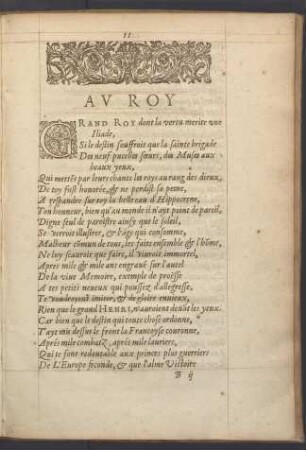 11
AV ROY
GRAND ROY dont la vertu merite vne
Iliade,
Si le destin souffroit que la sainte brigade
Des neuf pucelles sœurs, des Muses aux
beaux yeux,
Qui mettēs par leurs chants les roys au rang des dieux,
De toy fust honorée, & ne perdist sa peine,
A respandre sur toy la belle eau d'Hippocrene,
Ton honneur, bien qu'au monde il n'ayt point de pareil,
Digne seul de paroistre ainsy que le soleil,
Se verroit illustrer, & l'age qui consomme,
Malheur cōmun de tous, les faits ensemble & l'hōme,
Ne luy scauroit que faire, il viuroit immortel,
Apres mile & mile ans engraué sur l'autel
De la viue Memoire, exemple de proësse
A tes petits neueux qui poussez d'allegresse,
Te voudroyent imiter, & de gloire enuieux,
Rien que le grand HENRI, n'auroient deuāt les yeux.
Car bien que le destin qui toute chose ordonne,
T'ayt mis dessus le front la Françoyse couronne,
Aprés mile combatz, aprés mile lauriers,
Qui te font redoutable aux princes plus guerriers
De L'Europe feconde, & que l'alme Victoire
B ij